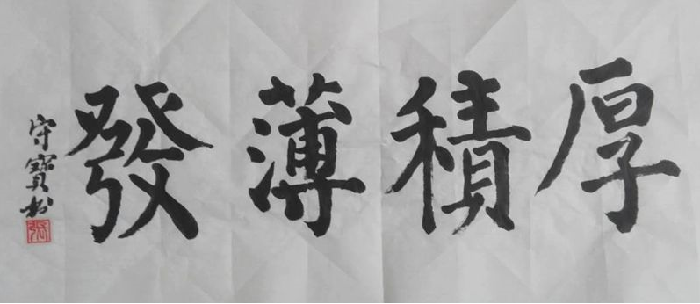 厚積薄發
守寶書
張